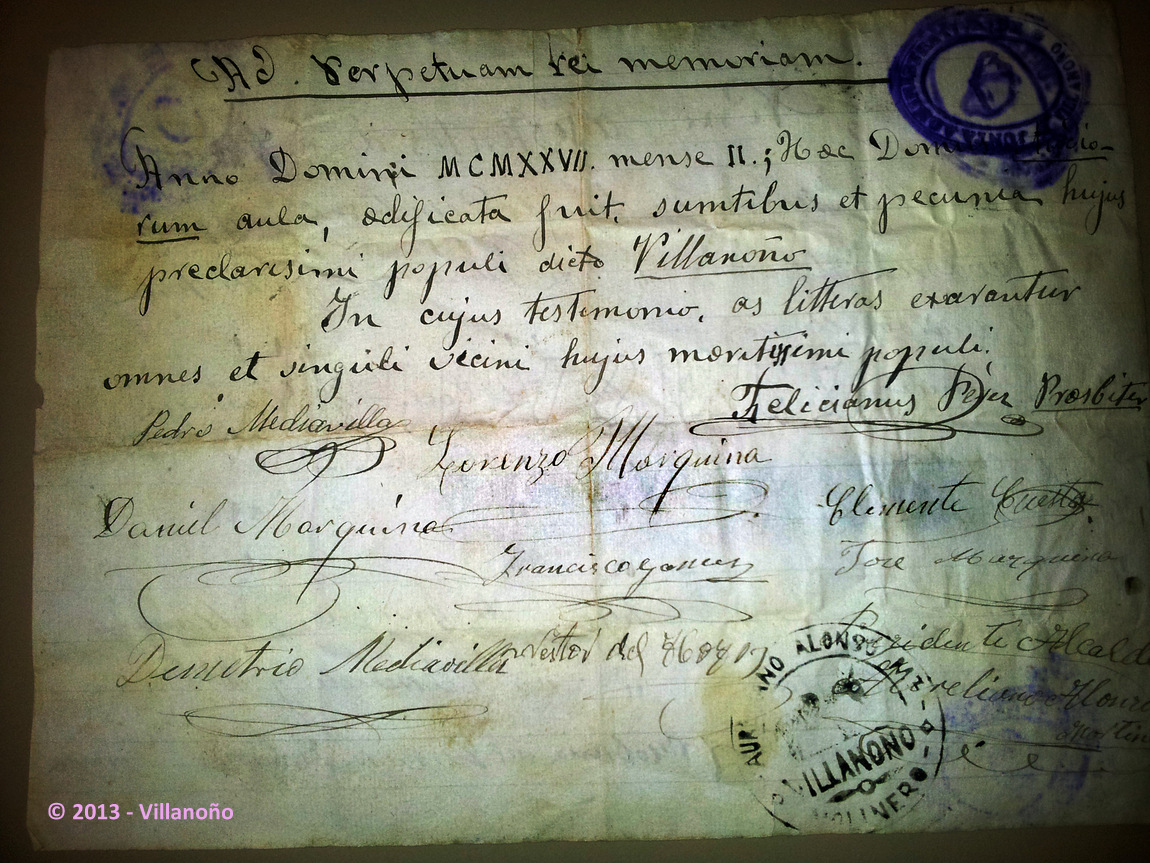 Ad. Perpetuam rei memoriam.
Anno Domini MCMXXVII. mense II.; Hæc
rum aula, ædificata fuit, sumtibus et pecunia hujus
preclarisimi populi dicto Villanoño
In cujus testimonio, as litteras exarantur
omnes et singuli vicini hujus meritissimi populi.
Felicianus Perez Presbiter
Pedro Mediavilla
Lorenzo Marquina
Daniel Marquina
Clemente Cuesta
Francisco Gomez
Jose Marquina
Demetrio Mediavilla
Nestor del
Presidente Alcalde
Aureliano Alonso
AURELIANO ALONSO MZ.
VILLANOÑO
MOLINERO
© 2013 - Villanoño